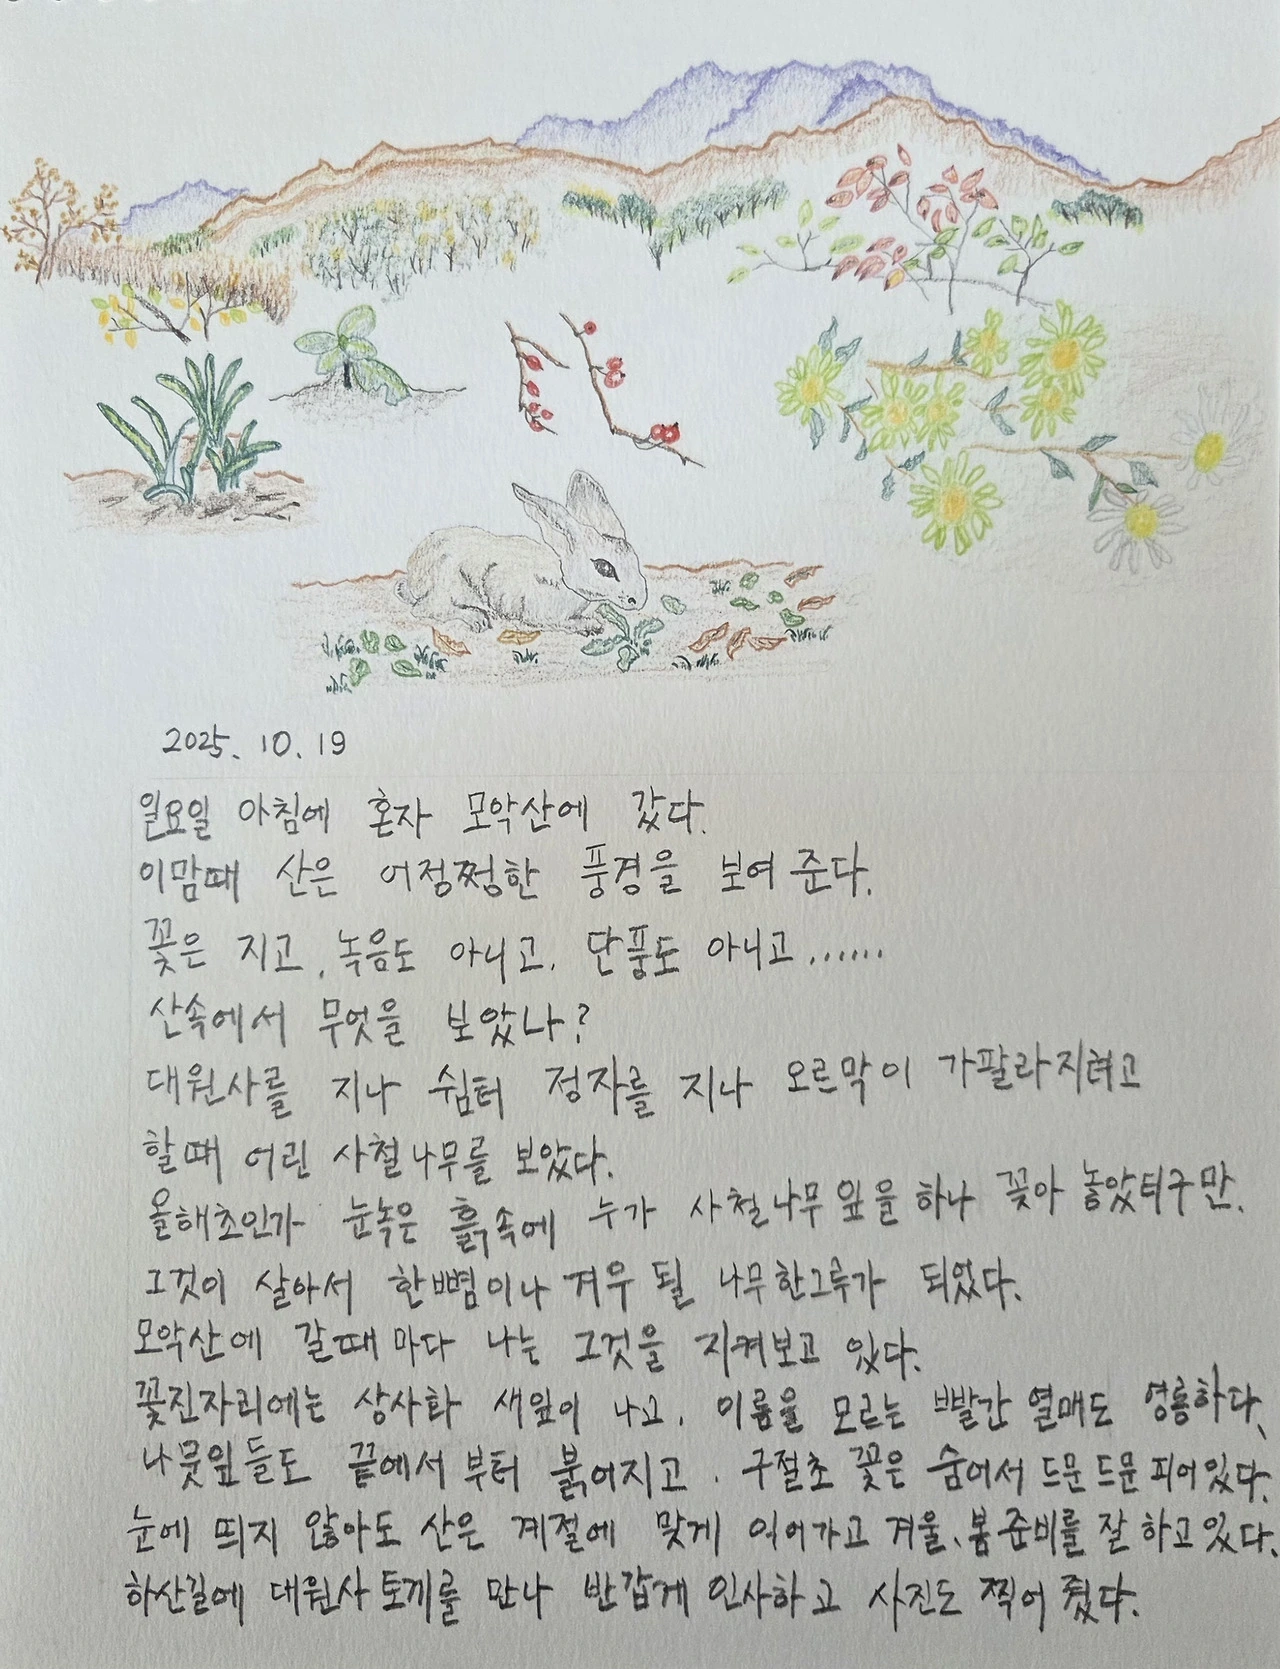 2025. 10. 19
일요일 아침에 혼자 모악산에 갔다.
이맘때 산은 어정쩡한 풍경을 보여 준다.
꽃은 지고, 녹음도 아니고, 단풍도 아니고......
산속에서 무엇을 보았나?
대원사를 지나 쉼터 정자를 지나 오르막이 가팔라지려고
할때 어린 사철나무를 보았다.
올해초인가 눈녹은 흙속에 누가 사철나무 잎을 하나 꽂아 놓았더구만.
그것이 살아서 한뼘이나 겨우 될 나무한그루가 되었다.
모악산에 갈때마다 나는 그것을 지켜보고 있다.
꽃진자리에는 상사화 새잎이 나고, 이름을 모르는 빨간 열매도 영롱하다.
나뭇잎들도 끝에서부터 붉어지고, 구절초 꽃은 숨어서 드문드문 피어있다.
눈에 띄지 않아도 산은 계절에 맞게 익어가고 겨울, 봄 준비를 잘 하고있다.
하산길에 대원사 토끼를 만나 반갑게 인사하고 사진도 찍어 줬다.